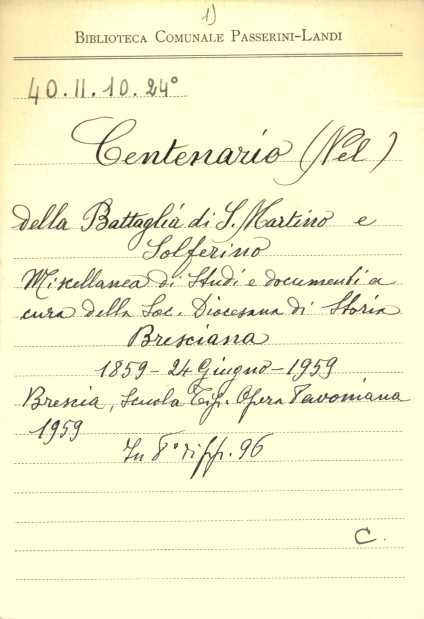 1)
BIBLIOTECA COMUNALE PASSERINI-LANDI
40.II.10.24°
Centenario (Nel)
della Battaglia di S. Martino e
Solferino
Miscellanea di Studi e documenti a
cura della Soc. Diocesana di Storia
Bresciana
1859 - 24 Giugno - 1959
Brescia, Scuola Tip. Opera Pavoniana
1959
In 8° di pp. 96
C.